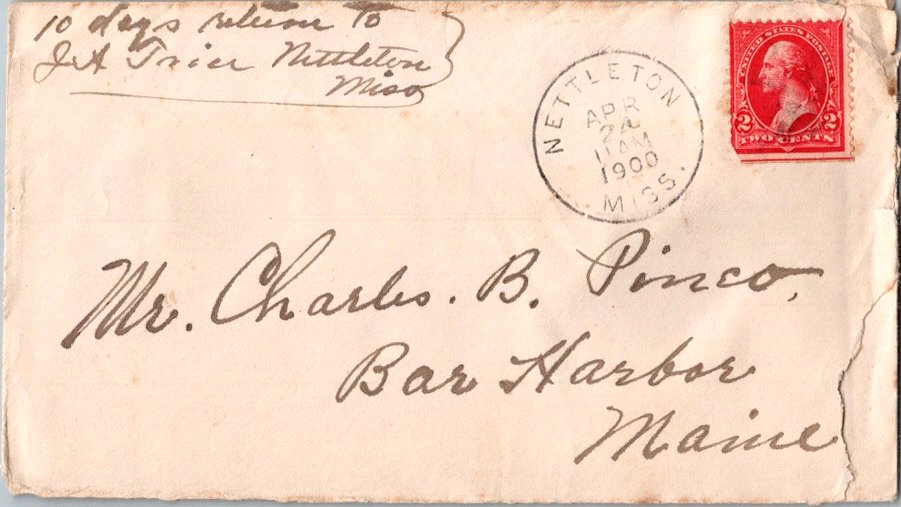 10 days return to
J A Trice Nettleton
Miss
NETTLETON
APR
24
11 AM
1900
MISS.
UNITED STATES POSTAGE
2 2
TWO CENTS
Mr. Charles. B. Pineo.
Bar Harbor
Maine